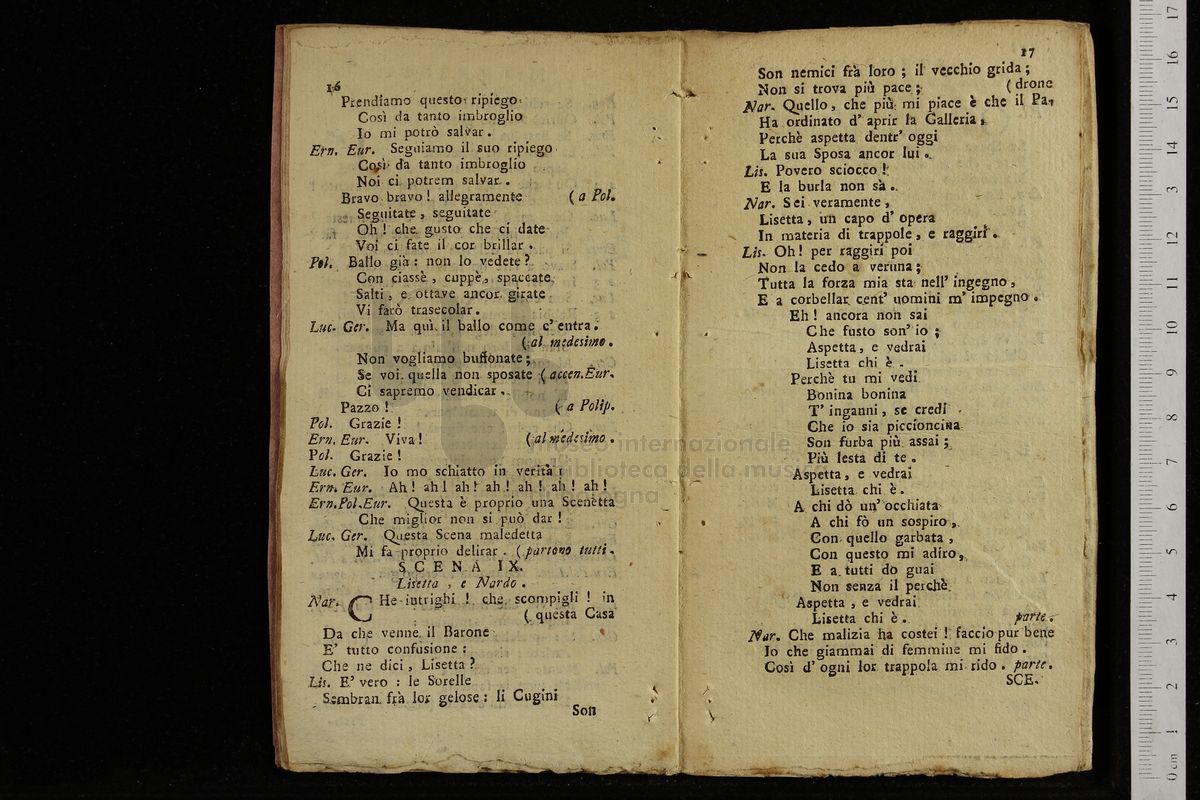 16
Prendiamo questo ripiego
Così da tanto imbroglio
Io mi potrò salvar.
Ern. Eur. Seguiamo il suo ripiego
Così da tanto imbroglio
Noi ci potrem salvar.
Bravo bravo! allegramente (a Pol.
Seguitate, seguitate
Oh! che gusto che ci date
Voi ci fate il cor brillar.
Pol. Ballo già: non lo vedete?
Con ciassè, cuppè, spaccate
Salti, e ottave ancor girate
Vi farò trasecolar.
Luc. Ger. Ma quì il ballo come c' entra.
(al medesimo.
Non vogliamo buffonate;
Se voi quella non sposate (accen.Eur.
Ci sapremo vendicar.
Pazzo! (a Polip.
Pol. Grazie!
Ern. Eur. Viva! (al medesimo.
Pol. Grazie!
Luc. Ger. Io mo schiatto in verità!
Ern. Eur. Ah! ah! ah! ah! ah! ah! ah!
Ern.Pol.Eur. Questa è proprio una Scenetta
Che miglior non si può dar!
Luc. Ger. Questa Scena maledetta
Mi fa proprio delirar. (partono tutti.
SCENA IX.
Lisetta, e Nardo.
Nar. CHe intrighi! che scompigli! in
(questa Casa
Da che venne il Barone
E' tutto confusione:
Che ne dici, Lisetta?
Lis. E' vero: le Sorelle
Sembran frà lor gelose: li Cugini
Son
17
Son nemici frà loro; il vecchio grida;
Non si trova più pace; (drone
Nar. Quello, che più mi piace è che il Pa-
Ha ordinato d' aprir la Galleria,
Perchè aspetta dentr' oggi
La sua Sposa ancor lui.
Lis. Povero sciocco!
E la burla non sà.
Nar. Sei veramente,
Lisetta, un capo d' opera
In materia di trappole, e raggiri.
Lis. Oh! per raggiri poi
Non la cedo a veruna;
Tutta la forza mia sta nell' ingegno,
E a corbellar cent' uomini m' impegno.
Eh! ancora non sai
Che fusto son' io;
Aspetta, e vedrai
Lisetta chi è.
Perchè tu mi vedi
Bonina bonina
T' inganni, se credi
Che io sia piccioncina
Son furba più assai;
Più lesta di te.
Aspetta, e vedrai
Lisetta chi è.
A chi dò un' occhiata
A chi fò un sospiro,
Con quello garbata,
Con questo mi adiro,
E a tutti do guai
Non senza il perchè.
Aspetta, e vedrai
Lisetta chi è. parte.
Nar. Che malizia ha costei! faccio pur bene
Io che giammai di femmine mi fido.
Così d' ogni lor trappola mi rido. parte.
SCE.
museo internazionale
biblioteca della musica
0 cm 1 2 3 4 5 6 7 8 9 10 11 12 13 14 15 16 17